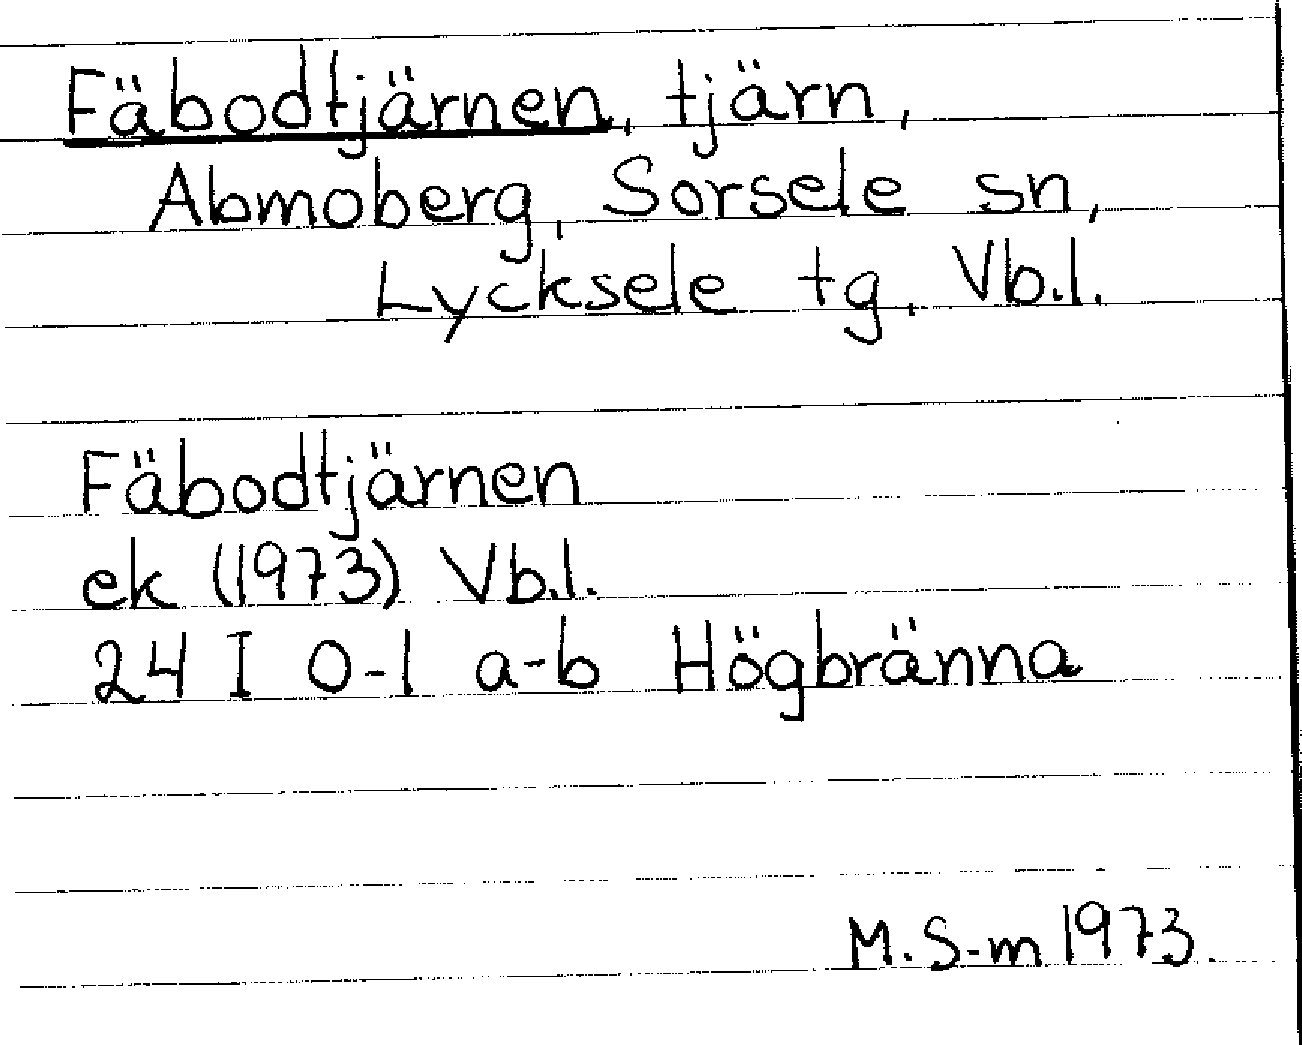 Fäbodtjärnen, tjärn,
Abmoberg, Sorsele sn,
Lycksele tg, Vb.l.
Fäbodtjärnen
ek (1973) Vb.l.
24 I 0-1 a-b Högbränna
M.S-m 1973.